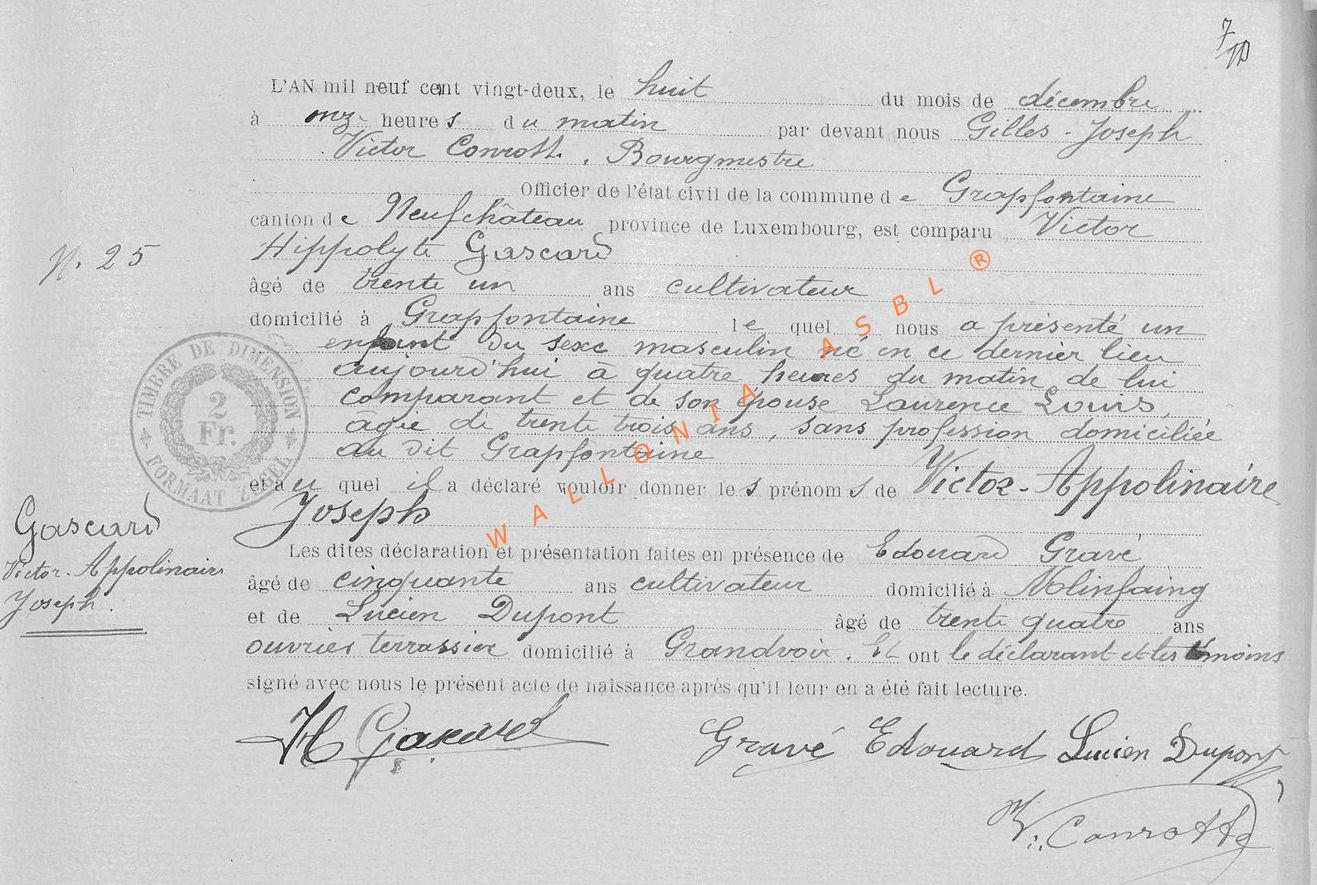 7
L'AN mil neuf cent vingt-deux, le huit du mois de décembre
à onze heures du matin par devant nous Gilles-Joseph
Victor Conrott, Bourgmestre
Officier de l'état civil de la commune de Grapfontaine
canton de Neufchâteau province de Luxembourg, est comparu Victor
Hippolyte Gascard
N. 25
âgé de trente un ans cultivateur
domicilié à Grapfontaine lequel nous a présenté un
enfant du sexe masculin né en ce dernier lieu
aujourd'hui à quatre heures du matin de lui
comparant et de son épouse Laurence Louis,
âgée de trente trois ans, sans profession domiciliée
au dit Grapfontaine
et auquel il a déclaré vouloir donner les prénoms de Victor-Appolinaire
Joseph
TIMBRE DE DIMENSION
2
Fr.
FORMAAT ZEGEL
Gascard
Victor-Appolinaire
Joseph.
Les dites déclaration et présentation faites en présence de Edouard Gravé
âgé de cinquante ans cultivateur domicilié à Molinfaing
et de Lucien Dupont âgé de trente quatre ans
ouvrier terrassier domicilié à Grandvoir. Et ont le déclarant et les témoins
signé avec nous le présent acte de naissance après qu'il leur en a été fait lecture.
H Gascard
Gravé Edouard Lucien Dupont
V. Conrotte
WALLONIA ASBL ®